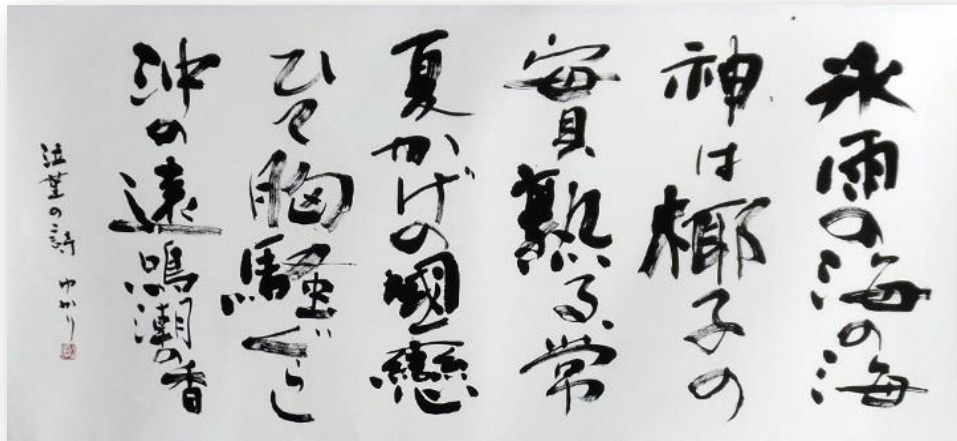 氷雨の海の海
神は椰子の
實熟る常
夏かげの國戀
ひて胸騒ぐらし
沖の遠鳴潮の香
泣菫の詩 ゆかり